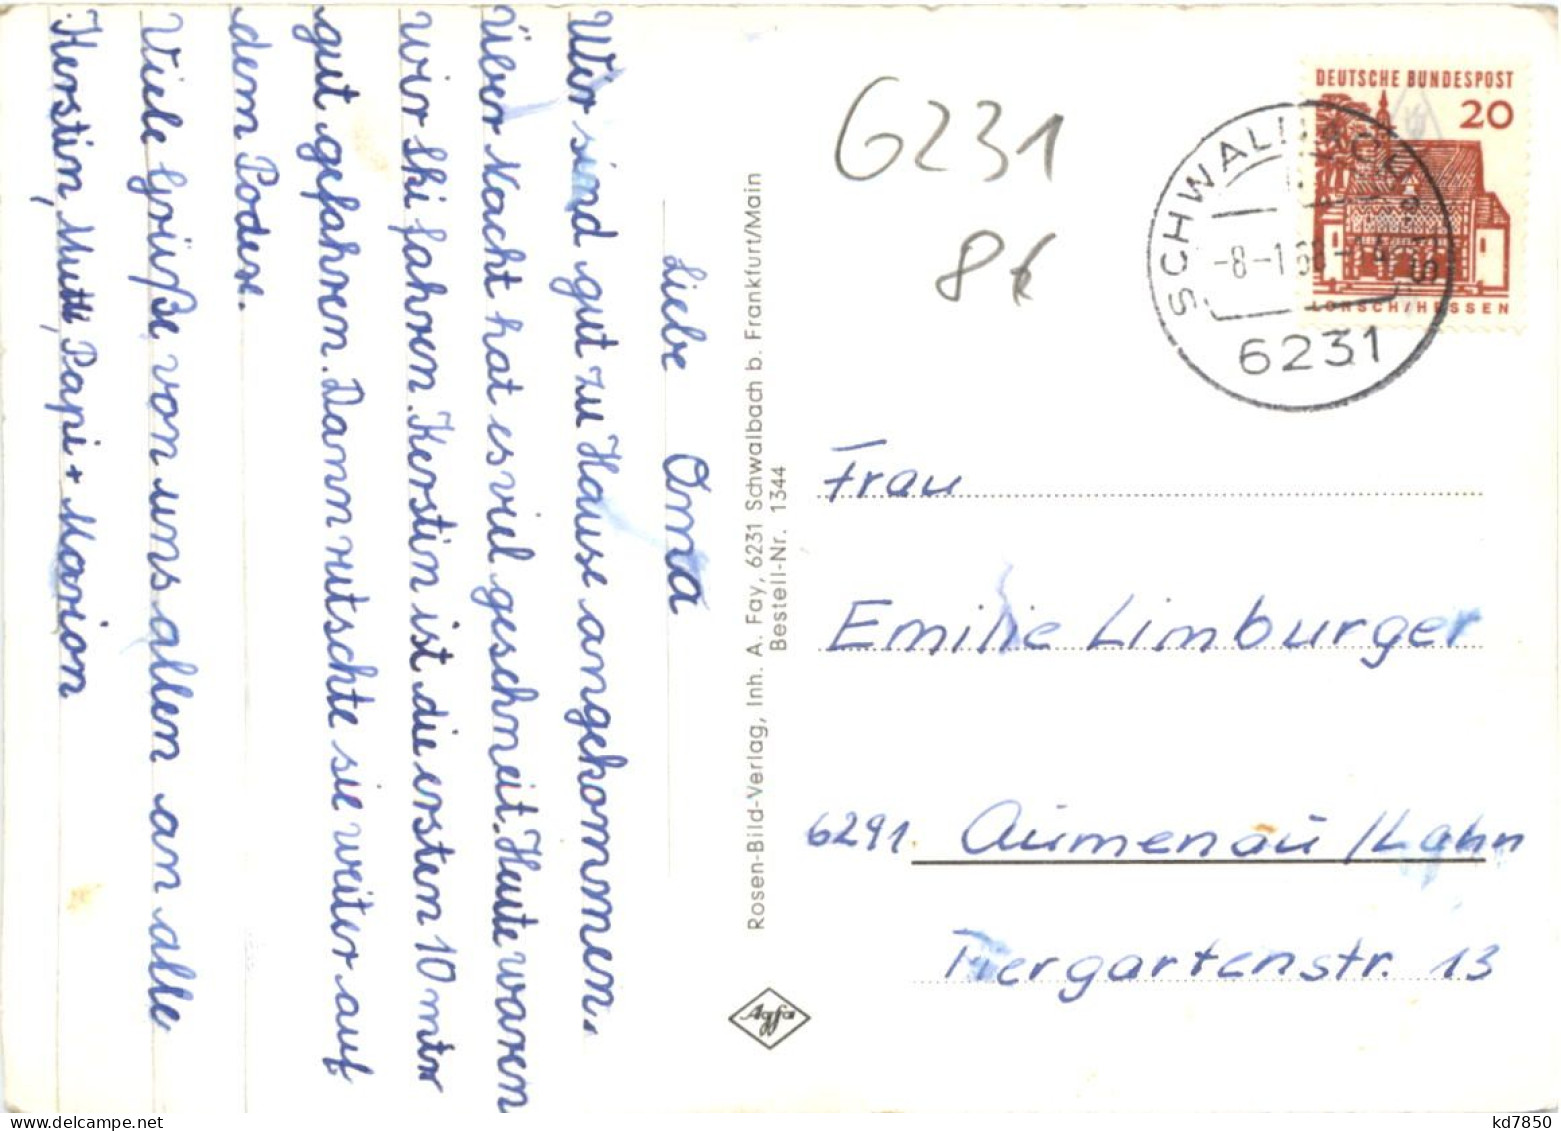 Liebe Oma
Wir sind gut zu Hause angekommen.
Über Nacht hat es viel geschneit. Heute waren
wir Ski fahren. Kerstin ist die ersten 10 mtr
gut gefahren. Dann rutschte sie weiter auf
dem Podex.
Viele Grüße von uns allen an alle
Kerstin, Mutti, Papi + Marion
Rosen-Bild-Verlag, Inh. A. Fay, 6231 Schwalbach b. Frankfurt/Main
Bestell-Nr. 1344
Agfa
6231
8€
DEUTSCHE BUNDESPOST
20
LORSCH/HESSEN
SCHWALBACH a. TS
-8-1.68-14
6231
Frau
Emilie Limburger
6291 Aumenau /Lahn
Tiergartenstr. 13
kd7850